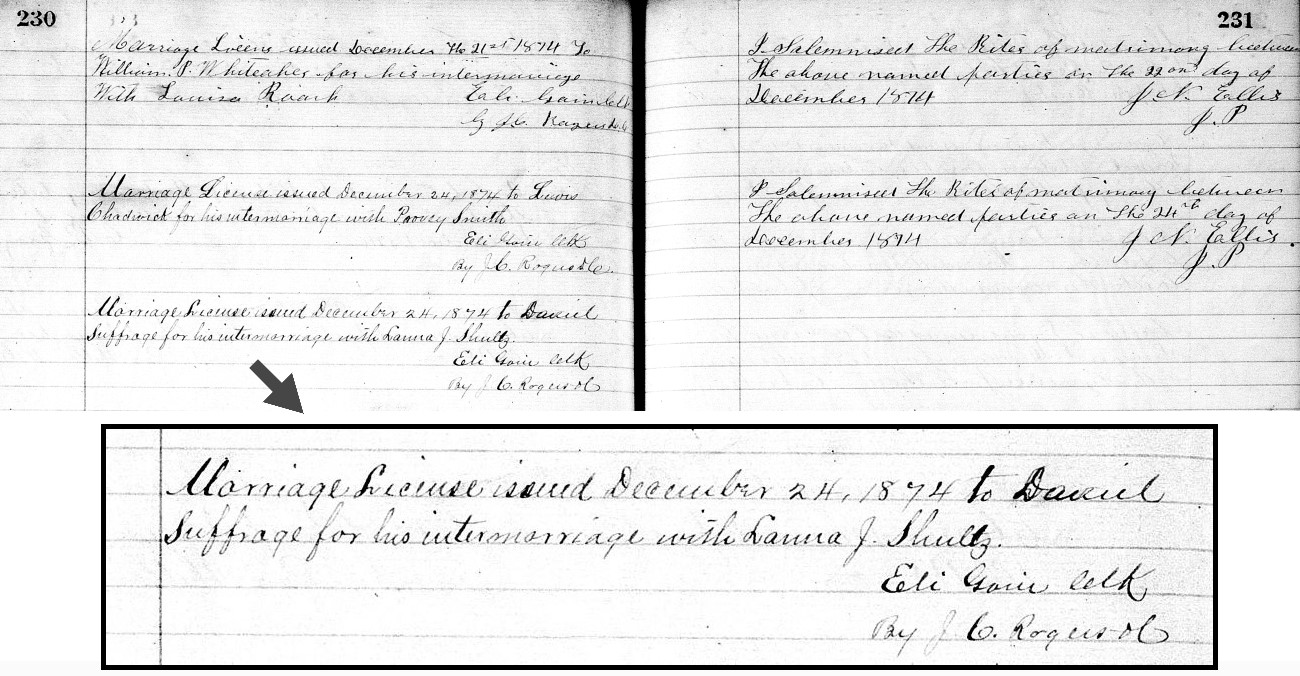 230
Marriage Licens issued December the 21st 1874 To
William P. Whiteaker for his intermarriage
With Louisa Roark Eali Goin Clk
By J.C. Rogers D.C.
Marriage License issued December 24, 1874 to Lewis
Chadwick for his intermarriage with Smith
Eli Goin Clk
By J.C. Rogers DC.
Marriage License issued December 24, 1874 to Daniel
Suffrage for his intermarriage with Lanna J. Shultz.
Eli Goin Clk
By J. C. Rogers DC
231
I Solemnised the Rites of matrimony between
The above named parties on the 22ond day of
December 1874 J N. Ellis
J.P
I Solemnised the Rites of matrimony between
The above named parties on the 24th day of
December 1874 J N. Ellis.
J.P
Marriage License issued December 24, 1874 to Daniel
Suffrage for his intermarriage with Lanna J. Shultz.
Eli Goin Clk
By J. C. Rogers DC